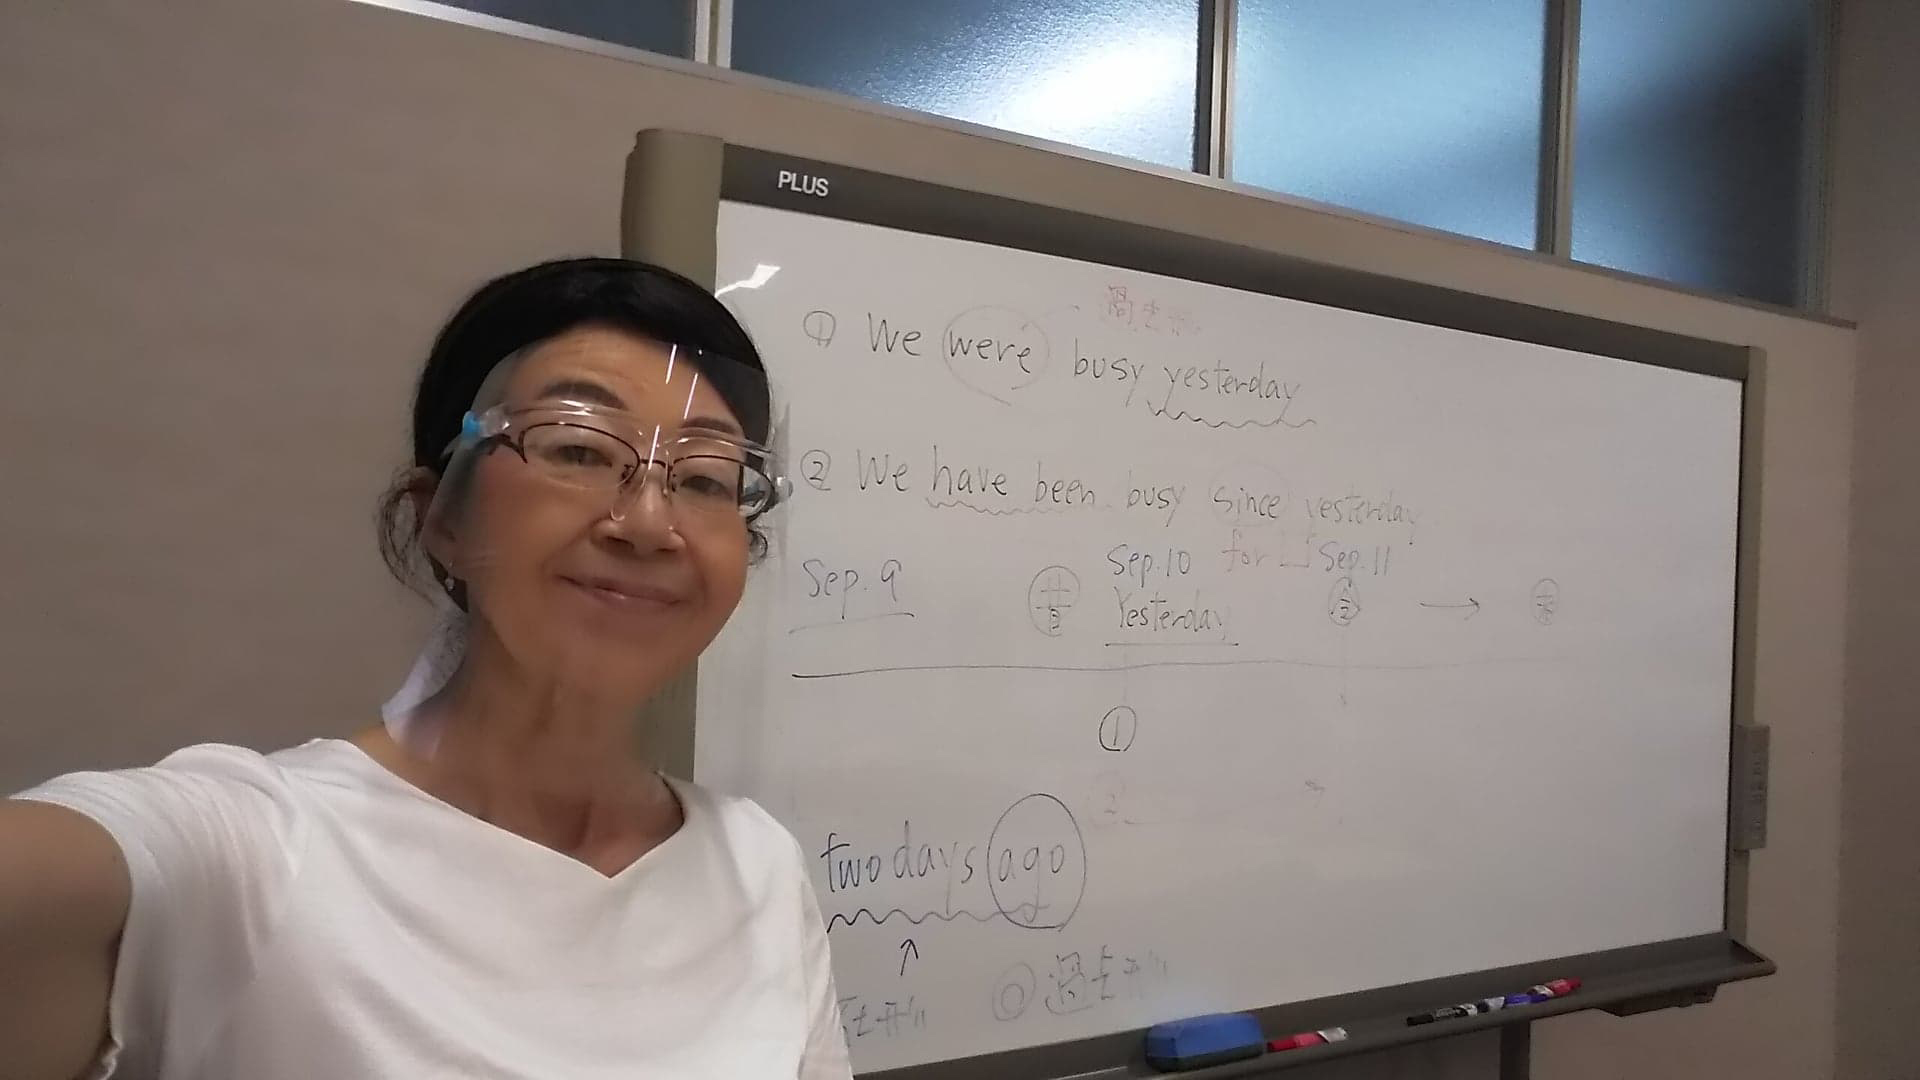 PLUS
過去形
① We were busy yesterday
② We have been busy since yesterday
Sep. 9 Sep. 10 for Sep. 11
Yesterday
①
2
two days ago
去形 ◎ 過去形